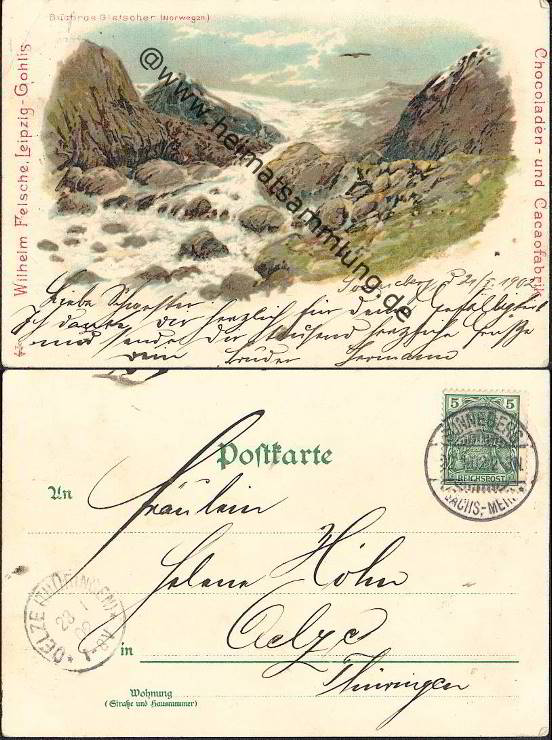 Buchraa Gletscher (Norwegen)
Wilhelm Felsche, Leipzig-Gohlis
Chocoladen- und Cacaofabrik
@www.heimatsammlung.de
Sonneberg d 21/I 1902
Liebe Schwester
Ich danke dir herzlich für deine Gefälligkeit
und sende dir tausend herzliche Grüße
dein bruder Hermann
5 5
REICHSPOST
SONNEBERG
SACHS.-MEIN.
Postkarte
An
Fräulein
Helene Höhn
in
Oelze
Thüringen
OELZE (THÜRINGEN)
Wohnung
(Straße und Hausnummer)